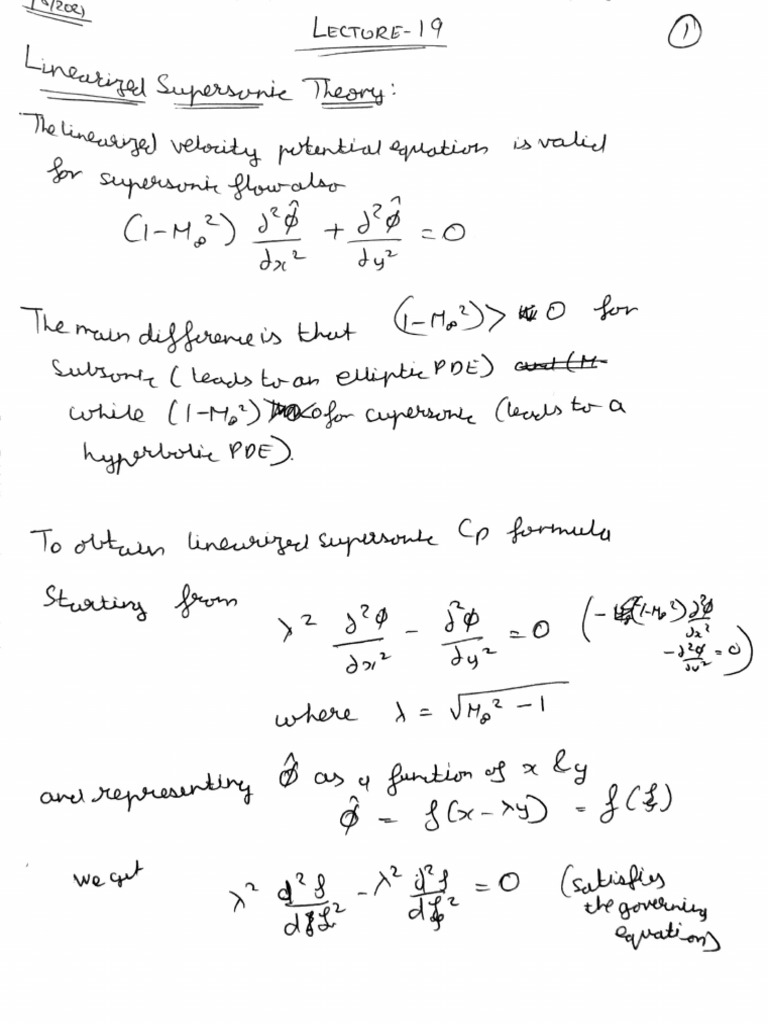 LECTURE-19
1
Linearized Supersonic Theory:
The linearized velocity potential equation is valid
for supersonic flow also
(1-M∞²) ∂²φ̂/∂x² + ∂²φ̂/∂y² = 0
The main difference is that (1-M∞²) > 0 for
subsonic (leads to an elliptic PDE)
while (1-M∞²) <0 for supersonic (leads to a
hyperbolic PDE).
To obtain linearized supersonic Cp formula
Starting from
λ² ∂²φ/∂x² - ∂²φ/∂y² = 0 (-(1-M∞²) ∂²φ/∂x²
- ∂²φ/∂y² = 0)
where λ = √(M∞² - 1)
and representing φ̂ as a function of x & y
φ̂ = f(x-λy) = f(ξ)
we get λ² d²f/dξ² - λ² d²f/dξ² = 0 (satisfies
the governing
equation)